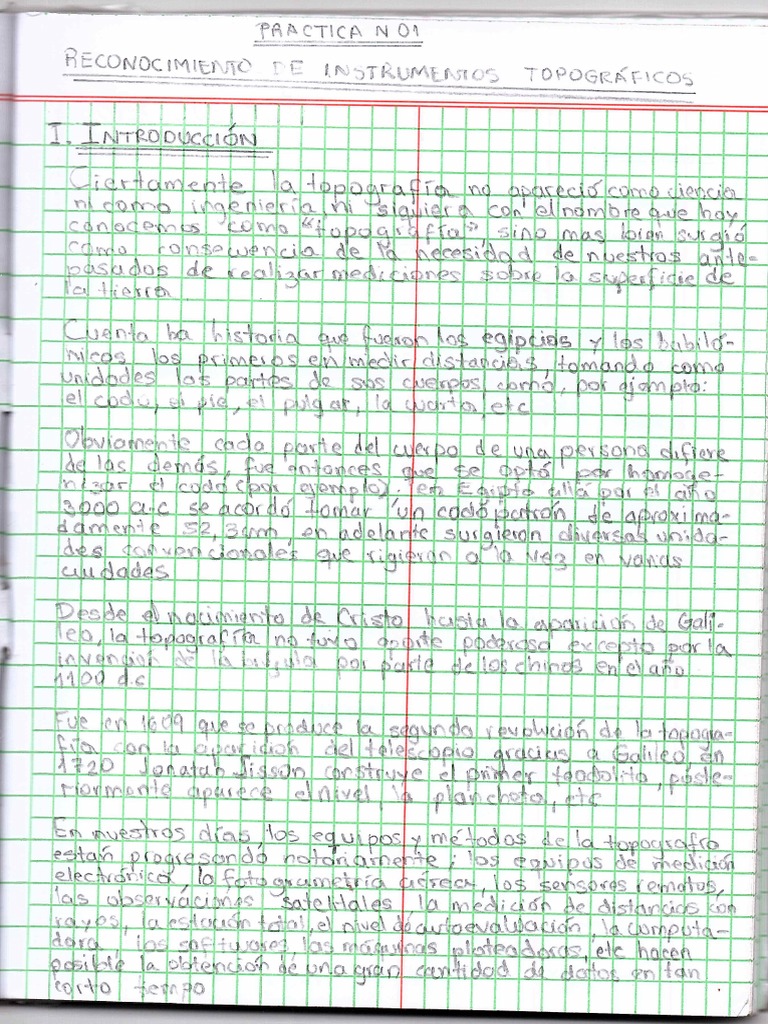 PRACTICA N 01
RECONOCIMIENTO DE INSTRUMENTOS TOPOGRÁFICOS
I. INTRODUCCIÓN
Ciertamente la topografía no apareció como ciencia
ni como ingeniería, ni siquiera con el nombre que hoy
conocemos como "topografía" sino mas bian surgió
como consecuencia de la necesidad de nuestros ante-
pasados de realizar mediciones sobre la superficie de
la tierra
Cuenta ba historia que fueron los egipcios y los babiló-
nicos los primeros en medir distancias, tomando como
unidades las partes de sus cuerpos como, por ejemplo:
el codo, el pie, el pulgar, la cuarta, etc
Obviamente cada parte del cuerpo de una persona difiere
de las demás, fue entonces que se optó por homoge-
nizar el codo (por ejemplo), en Egipto allá por el año
3000 a.c se acordó tomar un codo patrón de aproxima-
damente 52,3cm, en adelante surgieron diversas unida-
des convencionales que rigieron a la vez en varias
ciudades
Desde el nacimiento de Cristo hasta la aparición de Gali-
leo, la topografía no tuvo aporte poderoso excepto por la
invención de la por parte de los chinos en el año
1100 d.c
Fue en 1609 que se produce la segunda revolución de la topogra-
fía con la aparición del telescopio gracias a Galileo, en
1720 Jonatah Sisson construye el primer teodolito, poste-
riormente aparece el nivel, la plancheta, etc
En nuestros días, los equipos y métodos de la topografía
están progresando notoriamente; los equipos de medición
electrónica, la fotogrametría aérea, los sensores remotos,
las observaciones satelitales la medición de distancias con
rayos, la estación total, el nivel de autoevaluación, la computa-
dora, los softwares, las máquinas ploteadoras, etc hacen
posible la obtención de una gran cantidad de datos en tan
corto tiempo